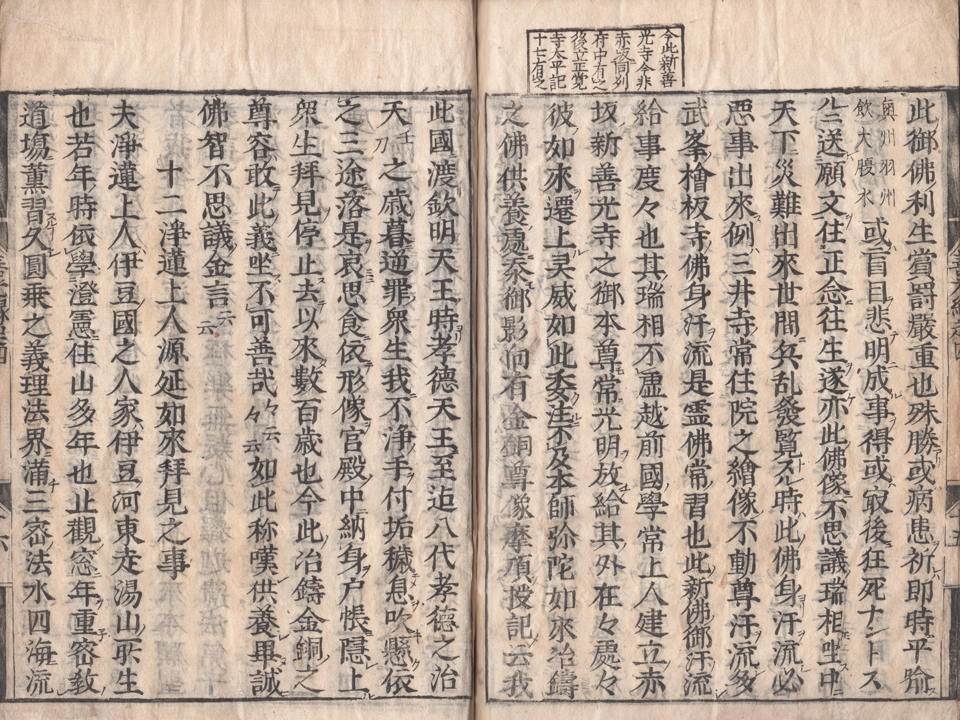 今此新善
光寺今非
赤坂同列
府中有之
後立正覚
寺太平記
十七有之
此御佛利生賞罸嚴重也殊勝或病患祈即時平癒
奥州羽州
飲大腹水
或盲目悲明成事得或最後狂死ナントス
三送願文住正念往生遂亦此佛像不思議瑞相㘴中
天下災難出來世間兵乱發覧スル時此佛身汗流必
惡事出來例三井寺常住院之繪像不動尊汗流多
武峯檜板寺佛身汗流是霊佛常習也此新佛御汗流
給事度々也其瑞相不虚越前國學常上人建立赤
坂新善光寺之御本尊常光明放給其外在々處々
彼如來遷上灵威如此委注不及本師弥陀如來冶鑄
之佛供養處奉御影向有金銅尊像摩頂授記云我
此國渡欽明天王時孝德天王至迠八代孝德之治
天壬刀之歳暮逆罪衆生我不淨手付垢穢息吹懸依
之三途落是哀思食依形像宮殿中納身户帳隱上
衆生拜見停止去以來數百歳也今此冶鑄金銅之
尊容敢此義㘴不可善哉々々云云如此称嘆供養畢誠
佛智不思議金言云云
十二淨蓮上人源延如來拜見之事
夫淨蓮上人伊豆國之人家伊豆河東走湯山所生
也若年時依學澄憲住山多年也止觀窓年重密教
道塲薫習久圓乗之義理法界滿三密法水四海流